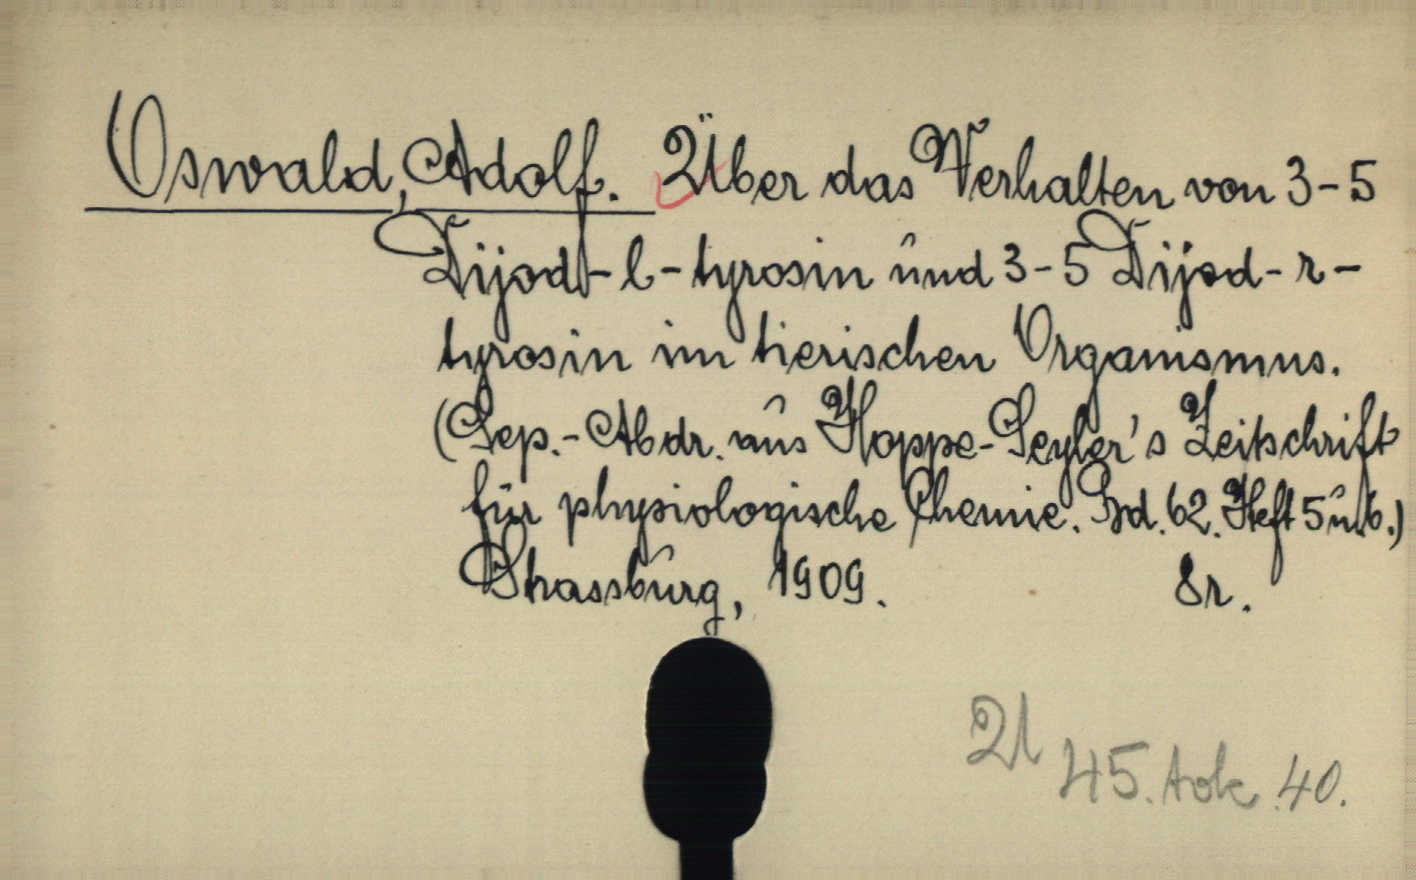 Oswald, Adolf. Über das Verhalten von 3-5
Dijod-l-tyrosin und 3-5 Dijod-r-
tyrosin im tierischen Organismus.
(Sep.-Abdr. aus Hoppe-Seyler's Zeitschrift
für physiologische Chemie. Bd. 62. Heft 5 u. 6.)
Strassburg, 1909. 8r.
45. 40.